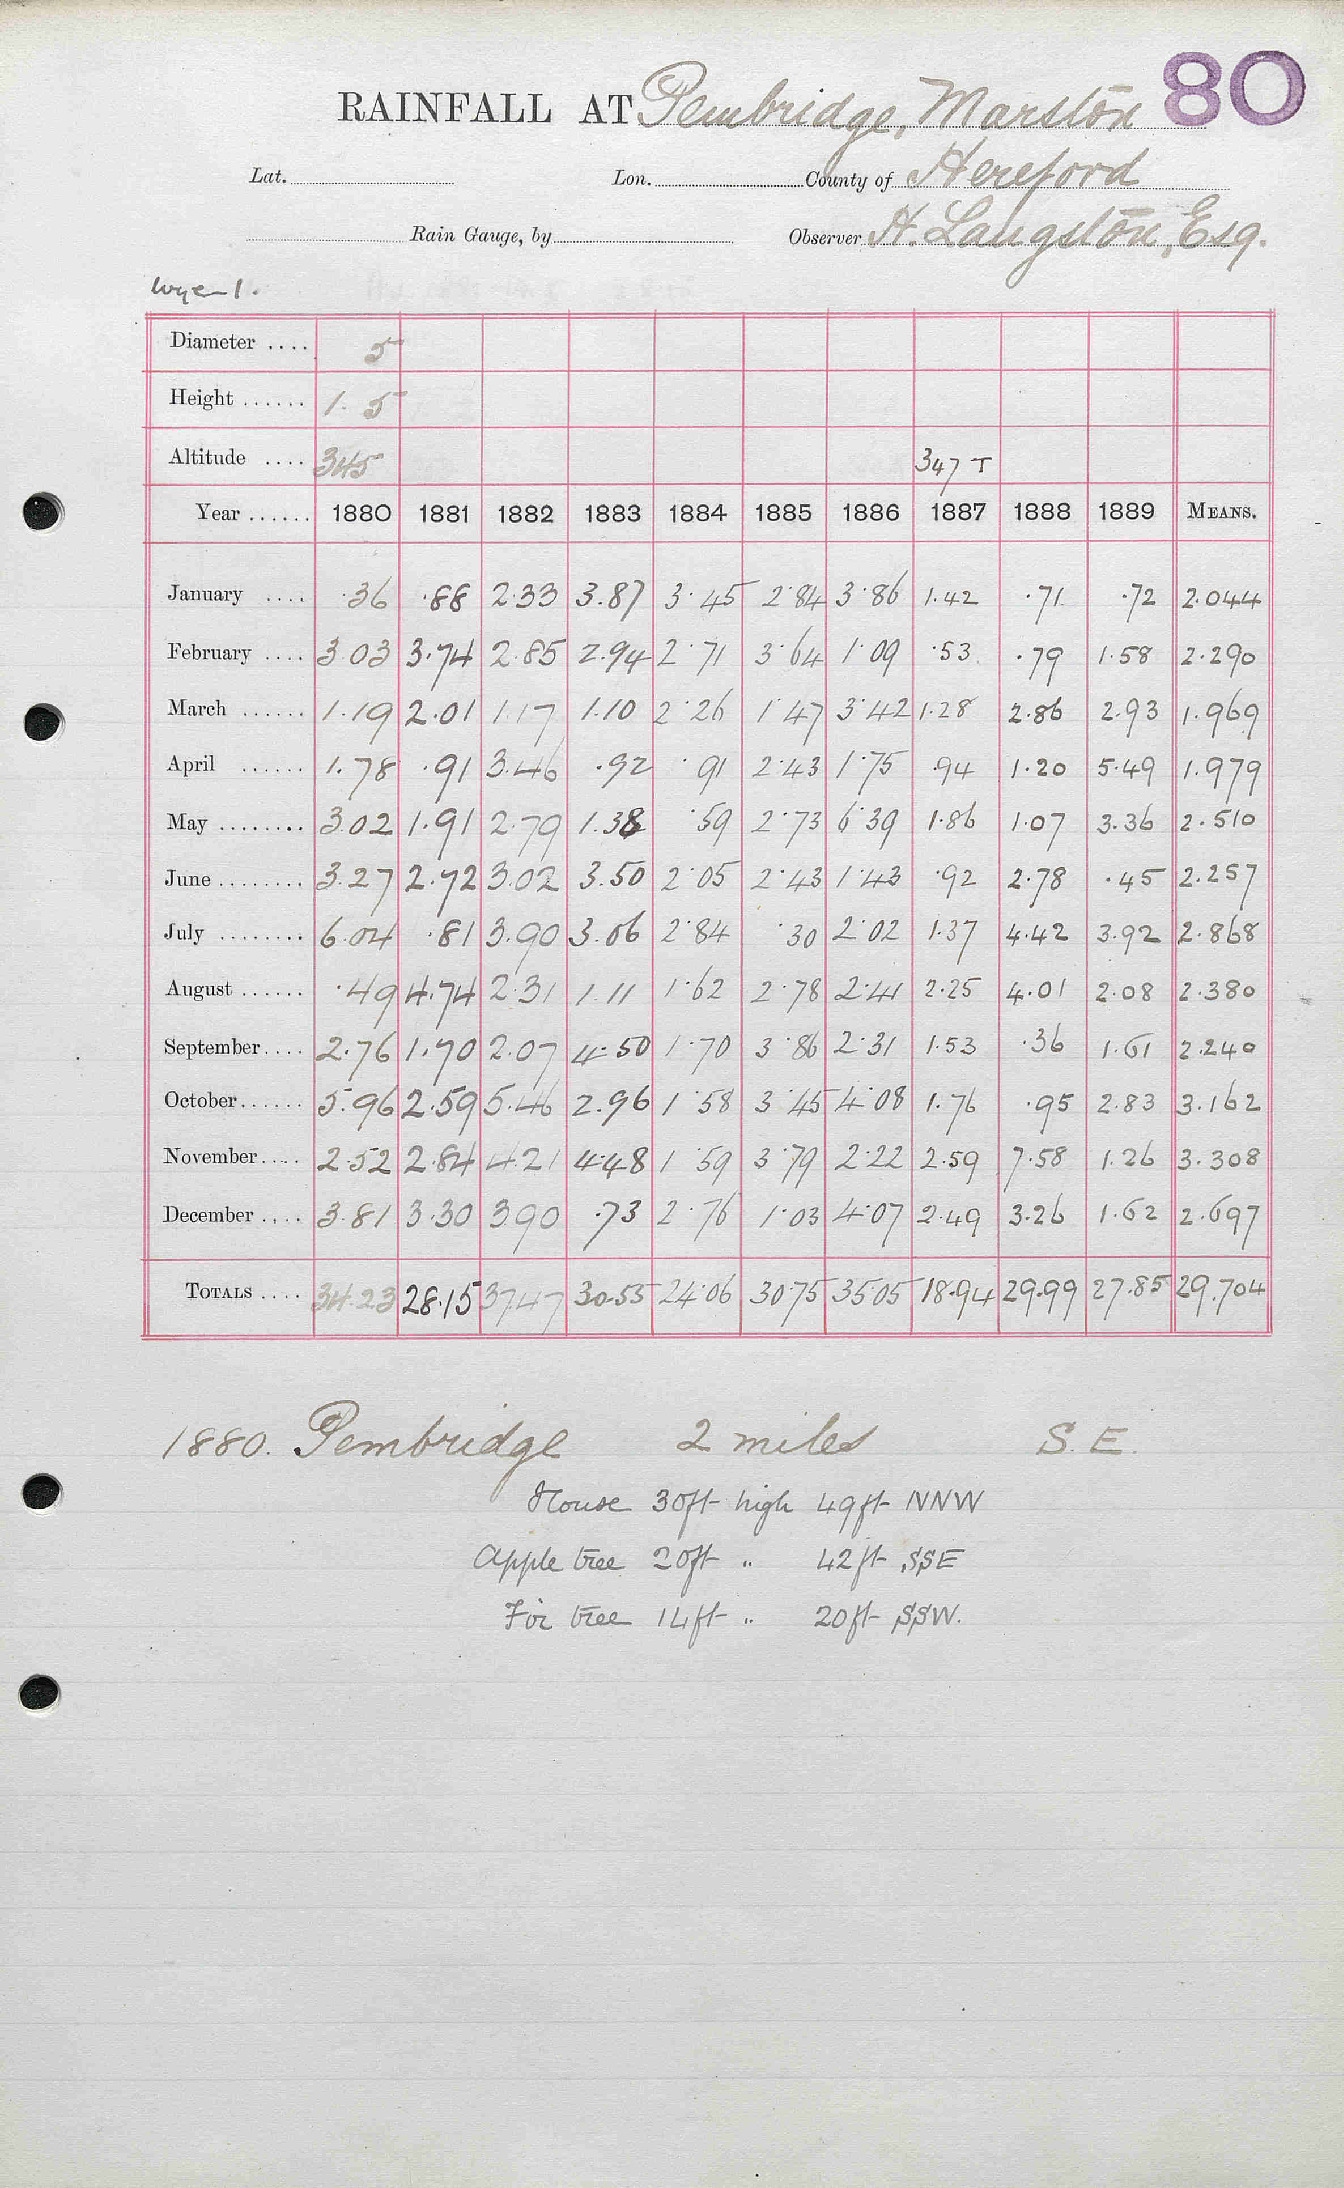 80
RAINFALL AT Pembridge, Marston
Lat. Lon. County of Hereford
Rain Gauge, by Observer H. Langston, Esq.
Wye 1.
Diameter .... 5
Height ...... 1. 5
Altitude .... 345 347 T
Year ...... 1880 1881 1882 1883 1884 1885 1886 1887 1888 1889 MEANS.
January .... .36 .88 2.33 3.87 3.45 2.84 3.86 1.42 .71 .72 2.044
February .... 3.03 3.74 2.85 2.94 2.71 3.64 1.09 .53 .79 1.58 2.290
March ...... 1.19 2.01 1.17 1.10 2.26 1.47 3.42 1.28 2.86 2.93 1.969
April ...... 1.78 .91 3.46 .92 .91 2.43 1.75 .94 1.20 5.49 1.979
May ........ 3.02 1.91 2.79 1.38 .59 2.73 6.39 1.86 1.07 3.36 2.510
June ........ 3.27 2.72 3.02 3.50 2.05 2.43 1.43 .92 2.78 .45 2.257
July ........ 6.04 .81 3.90 3.06 2.84 .30 2.02 1.37 4.42 3.92 2.868
August ...... .49 4.74 2.31 1.11 1.62 2.78 2.41 2.25 4.01 2.08 2.380
September .... 2.76 1.70 2.07 4.50 1.70 3.86 2.31 1.53 .36 1.61 2.240
October ...... 5.96 2.59 5.46 2.96 1.58 3.45 4.08 1.76 .95 2.83 3.162
November .... 2.52 2.84 4.21 4.48 1.59 3.79 2.22 2.59 7.58 1.26 3.308
December .... 3.81 3.30 3.90 .73 2.76 1.03 4.07 2.49 3.26 1.62 2.697
TOTALS .... 34.23 28.15 37.47 30.55 24.06 30.75 35.05 18.94 29.99 27.85 29.704
1880. Pembridge 2 miles S.E.
House 30ft high 49ft NNW
Apple tree 20ft " 42ft SSE
Fir tree 14ft " 20ft SSW.